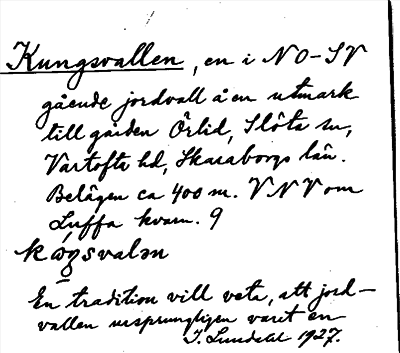 Kungsvallen, en i NO-SV
gående jordvall å en utmark
till gården Örlid, Slöta sn,
Vartofta hd, Skaraborgs län.
Belägen ca 400 m. VNV om
Luffa kvarn. 9
kȯŋsvalən
En tradition vill veta, att jord-
vallen ursprungligen varit en
I. Lundahl 1927.